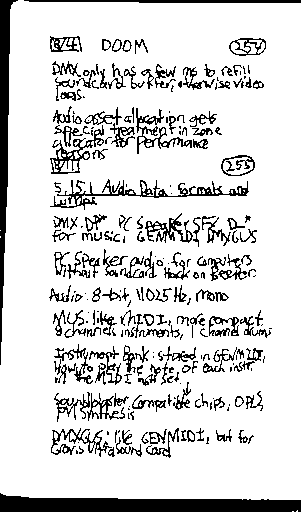 8/4 DOOM 254
DMX only has a few ms to refill
soundcard buffer, otherwise video
lags.
Audio asset allocation gets
special treatment in zone
allocator for performance
reasons
8/11 255
5.15.1 Audio Data: Formats and
Lumps
DMX. DP* PC Speaker SFX D_*
for music, GENMIDI, DMXGUS
PC Speaker audio for computers
without soundcard. Hack on Beeper
Audio: 8-bit, 11025 Hz, mono
MUS: like MIDI, more compact
8 channels instruments, 1 channel drums
Instrument Bank: stored in GENMIDI,
how to play the note, of each instr.
in the MIDI inst set.
Soundblaster compatible chips, OPL2,
FM Synthesis
DMXGUS: like GENMIDI, but for
Gravis Ultrasound card